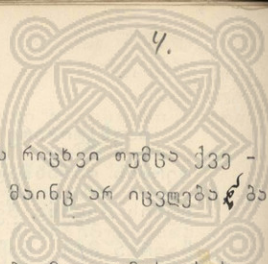 4.
რიცხვი თუმცა ქვე -
მაინც არ იცვლება